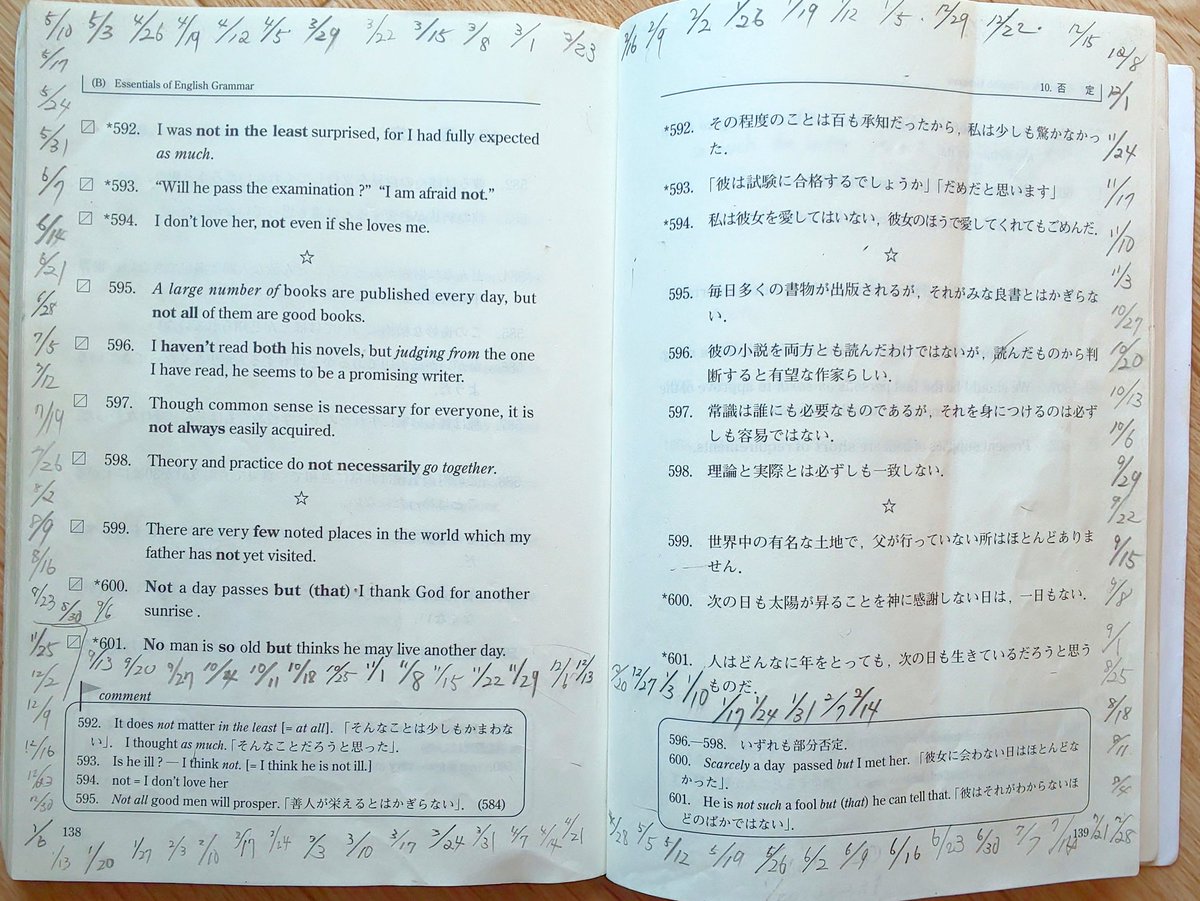 5/10 5/3 4/26 4/19 4/12 4/5 3/29 3/22 3/15 3/8 3/1 2/23
5/17
5/24
5/31
6/7
6/14
6/21
6/28
7/5
7/12
7/19
7/26
8/2
8/9
8/16
8/23 8/30 9/6
11/25
12/2
12/9
12/16
12/23
12/30
1/6
(B) Essentials of English Grammar
*592. I was not in the least surprised, for I had fully expected
as much.
*593. “Will he pass the examination ?” “I am afraid not.”
*594. I don't love her, not even if she loves me.
☆
595. A large number of books are published every day, but
not all of them are good books.
596. I haven't read both his novels, but judging from the one
I have read, he seems to be a promising writer.
597. Though common sense is necessary for everyone, it is
not always easily acquired.
598. Theory and practice do not necessarily go together.
☆
599. There are very few noted places in the world which my
father has not yet visited.
*600. Not a day passes but (that) I thank God for another
sunrise .
*601. No man is so old but thinks he may live another day.
9/13 9/20 9/27 10/4 10/11 10/18 10/25 11/1 11/8 11/15 11/22 11/29 12/6 12/13
comment
592. It does not matter in the least [= at all].「そんなことは少しもかまわな
い」. I thought as much.「そんなことだろうと思った」.
593. Is he ill ? — I think not. [= I think he is not ill.]
594. not = I don't love her
595. Not all good men will prosper.「善人が栄えるとはかぎらない」. (584)
138
1/13 1/20 1/27 2/3 2/10 2/17 2/24 3/3 3/10 3/17 3/24 3/31 4/7 4/14 4/21
2/16 2/9 2/2 1/26 1/19 1/12 1/5 12/29 12/22 12/15
12/8
12/1
11/24
11/17
11/10
11/3
10/27
10/20
10/13
10/6
9/29
9/22
9/15
9/8
9/1
8/25
8/18
8/11
8/4
10. 否 定
*592. その程度のことは百も承知だったから，私は少しも驚かなかっ
た．
*593. 「彼は試験に合格するでしょうか」「だめだと思います」
*594. 私は彼女を愛してはいない，彼女のほうで愛してくれてもごめんだ．
☆
595. 毎日多くの書物が出版されるが，それがみな良書とはかぎらな
い．
596. 彼の小説を両方とも読んだわけではないが，読んだものから判
断すると有望な作家らしい．
597. 常識は誰にも必要なものであるが，それを身につけるのは必ず
しも容易ではない．
598. 理論と実際とは必ずしも一致しない．
☆
599. 世界中の有名な土地で，父が行っていない所はほとんどありま
せん．
*600. 次の日も太陽が昇ることを神に感謝しない日は，一日もない．
*601. 人はどんなに年をとっても，次の日も生きているだろうと思う
ものだ．
12/20 12/27 1/3 1/10 1/17 1/24 1/31 2/7 2/14
596.—598. いずれも部分否定．
600. Scarcely a day passed but I met her.「彼女に会わない日はほとんどな
かった」．
601. He is not such a fool but (that) he can tell that.「彼はそれがわからないほ
どのばかではない」．
139
4/28 5/5 5/12 5/19 5/26 6/2 6/9 6/16 6/23 6/30 7/7 7/14 7/21 7/28